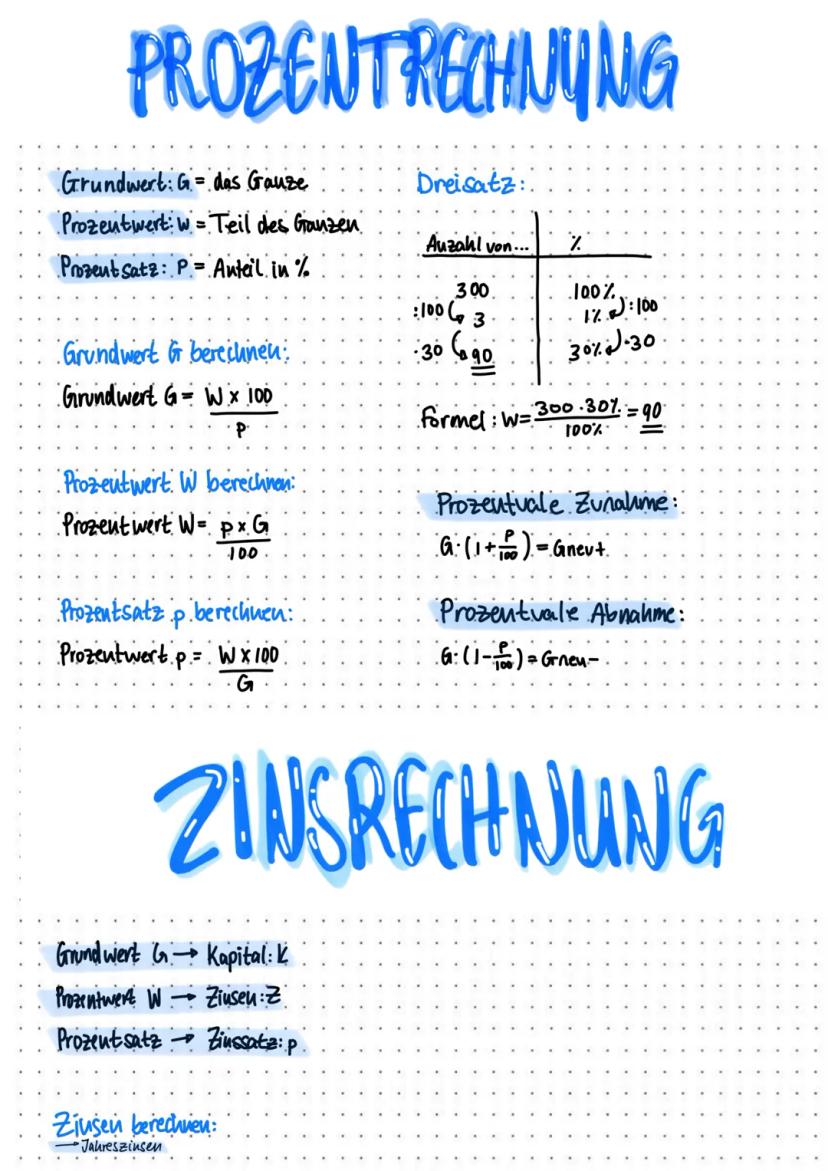 PROZENTRECHNUNG
Grundwert: G = das Ganze
Prozentwert: W = Teil des Ganzen
Prozentsatz: P = Anteil in %
Grundwert G berechnen:
Grundwert G = W x 100
p
Prozentwert W berechnen:
Prozentwert W = p x G
100
Prozentsatz p berechnen:
Prozentwert p = W x 100
G
Dreisatz:
Anzahl von... %
300 100%
:100 3 1% :100
·30 90 30% ·30
Formel: W = 300 · 30% = 90
100%
Prozentuale Zunahme:
G · (1 + p/100) = Gneu+
Prozentuale Abnahme:
G · (1 - p/100) = Gneu-
ZINSRECHNUNG
Grundwert G → Kapital: K
Prozentwert W → Zinsen: Z
Prozentsatz → Zinssatz: p
Zinsen berechnen:
→ Jahreszinsen